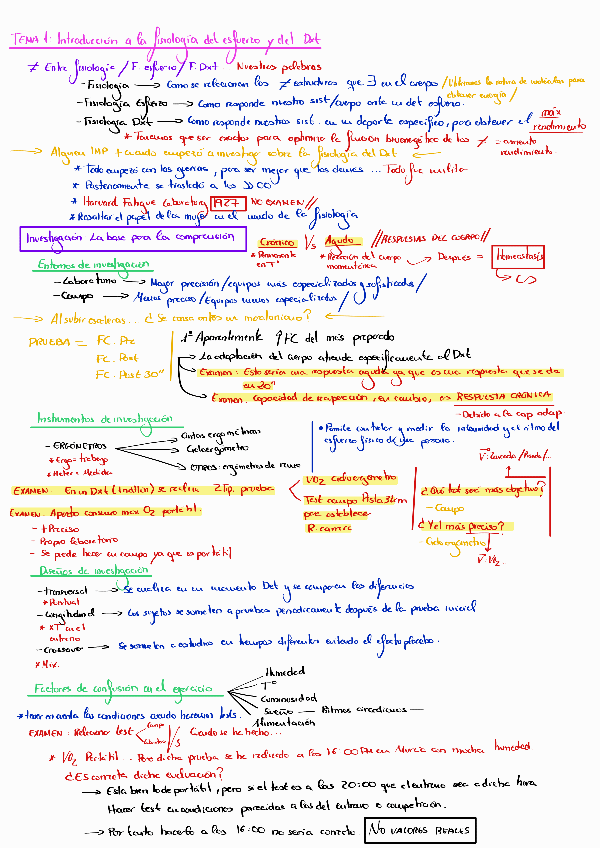 TEMA 1. Introducción a la fisiología del esfuerzo y del Dxt
≠ Entre fisiología / F. esfuerzo / F. Dxt Nuestras palabras
- Fisiología → Como se relacionan las ≠ estructuras que ∃ en el cuerpo / Utilizamos la rotura de moléculas para obtener energía /
- Fisiología Esfuerzo → Como responde nuestro sist/cuerpo ante un det esfuerzo.
- Fisiología Dxt → Como responde nuestro sist. en un deporte específico, para obtener el máx rendimiento
* Tenemos que ser exactos para optimizar la función bioenergética de los ≠ = aumento rendimiento.
→ Algunas IMP + cuando empezó a investigar sobre la fisiología del Dxt ←
* Todo empezó con las guerras, para ser mejor que los demás ... Todo fue militar
* Posteriormente se trasladó a los JJOO
* Harvard Fatigue Laboratory 1927 NO EXAMEN //
* Resaltar el papel de la mujer en el mundo de la fisiología
Investigación La base para la comprensión
Crónico V/s Agudo // RESPUESTAS DEL CUERPO //
* Permanente en Tº
* Reacción del cuerpo momentánea → Después = Homeostasis
Entornos de investigación
- Laboratorio → Mayor precisión / equipos más especializados y sofisticados /
- Campo → Menos preciso / Equipos menos especializados /
→ Al subir escaleras... ¿Se cansa antes un maratoniano? ←
PRUEBA = FC. Pre
FC. Post
FC. Post 30"
1º Aparentemente ↑ FC del más preparado
→ La adaptación del cuerpo atiende específicamente al Dxt
→ Examen: Esto sería una respuesta aguda ya que es una respuesta que se da en 20"
→ Examen. Capacidad de recuperación, en cambio, es RESPUESTA CRÓNICA
- Debido a la cap adap.
Instrumentos de investigación
- ERGÓMETROS
* Ergo = trabajo
* Meter = Medida
→ Cintas ergométricas
→ Cicloergómetro
→ OTROS: ergómetros de remo
• Permite controlar y medir la intensidad y el ritmo del esfuerzo físico de una persona.
EXAMEN En un Dxt (triatlón) se realizan 2 Tip. prueba
VO2 cicloergómetro
Test campo Pista 3km
R. carrera
¿Qué test será más objetivo?
- Campo
¿Y el más preciso?
- Cicloergómetro
↓ V. VO2
EXAMEN. Aparato consumo max O2 portátil.
- + Preciso
- Propio laboratorio
- Se puede hacer en campo ya que es portátil
Diseños de investigación
- transversal → Se analiza en un momento Det y se comparan las diferencias
* Puntual
- Longitudinal → Los sujetos se someten a pruebas periódicamente después de la prueba inicial
- Crossover → Se someten a estudios en tiempos diferentes evitando el efecto placebo.
* Mix.
Factores de confusión en el ejercicio
Humedad
Tº
Luminosidad
Sueño — Ritmos circadianos —
Alimentación
* tener en cuenta las condiciones cuando hacemos tests.
EXAMEN: Relacionar test Campo V/s Cuando se ha hecho...
* VO2 Portátil. Pero dicha prueba se ha realizado a las 16:00 PM en Murcia con mucha humedad
¿Es correcta dicha evaluación?
→ Esta bien lo de portátil, pero si el test es a las 20:00 que el entreno sea a dicha hora
Hacer test en condiciones parecidas a las del entreno o competición.
→ Por tanto hacerlo a las 16:00 no sería correcto NO VALORES REALES